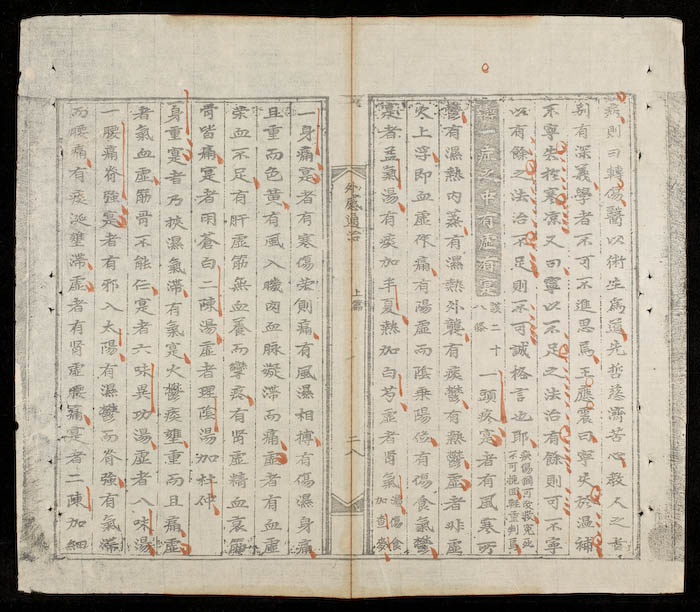 病則曰轉傷醫以術生爲道先哲慈濟苦心救人之書
別有深義學者不可不進思焉王應震曰寧失於温補
不寧失於寒凉又曰寧以不足之法治有餘則可不寧
以有餘之法治不足則不可誠格言也耶
論一症之中有虛有實該二十八條一頭疼寔者有風寒所
鬱有濕熱内蒸有濕熱外襲有痰鬱有熱鬱虛者非虛
火上浮即血虛作痛有陽虛而陰乘陽位有傷食氣鬱
寔者芎湯有痰加半夏熱加白芍虛者腎氣湯傷食加査麥
外感通治
上篇
二八
一身痛寔者有寒傷栄則痛有風濕相搏有傷濕身痛
且重而色黄有風入膲肉血脉凝滞而痛虛者有血虛
栄血不足有肝虛筋無血養而攣疼有腎虛精血衰
骨皆痛寔者用蒼白二陳湯虛者理陰湯加杜仲
身重寔者乃挾濕氣滞有氣寔火鬱痰壅重而且痛虛
者氣血虛筋骨不能仁寔者六味異功湯虛者八味湯
一腰痛脊強寔者有邪入太陽有濕鬱而脊強有氣滞
而腰痛有痰涎壅滞虛者有腎虛腰痛寔者二陳加細